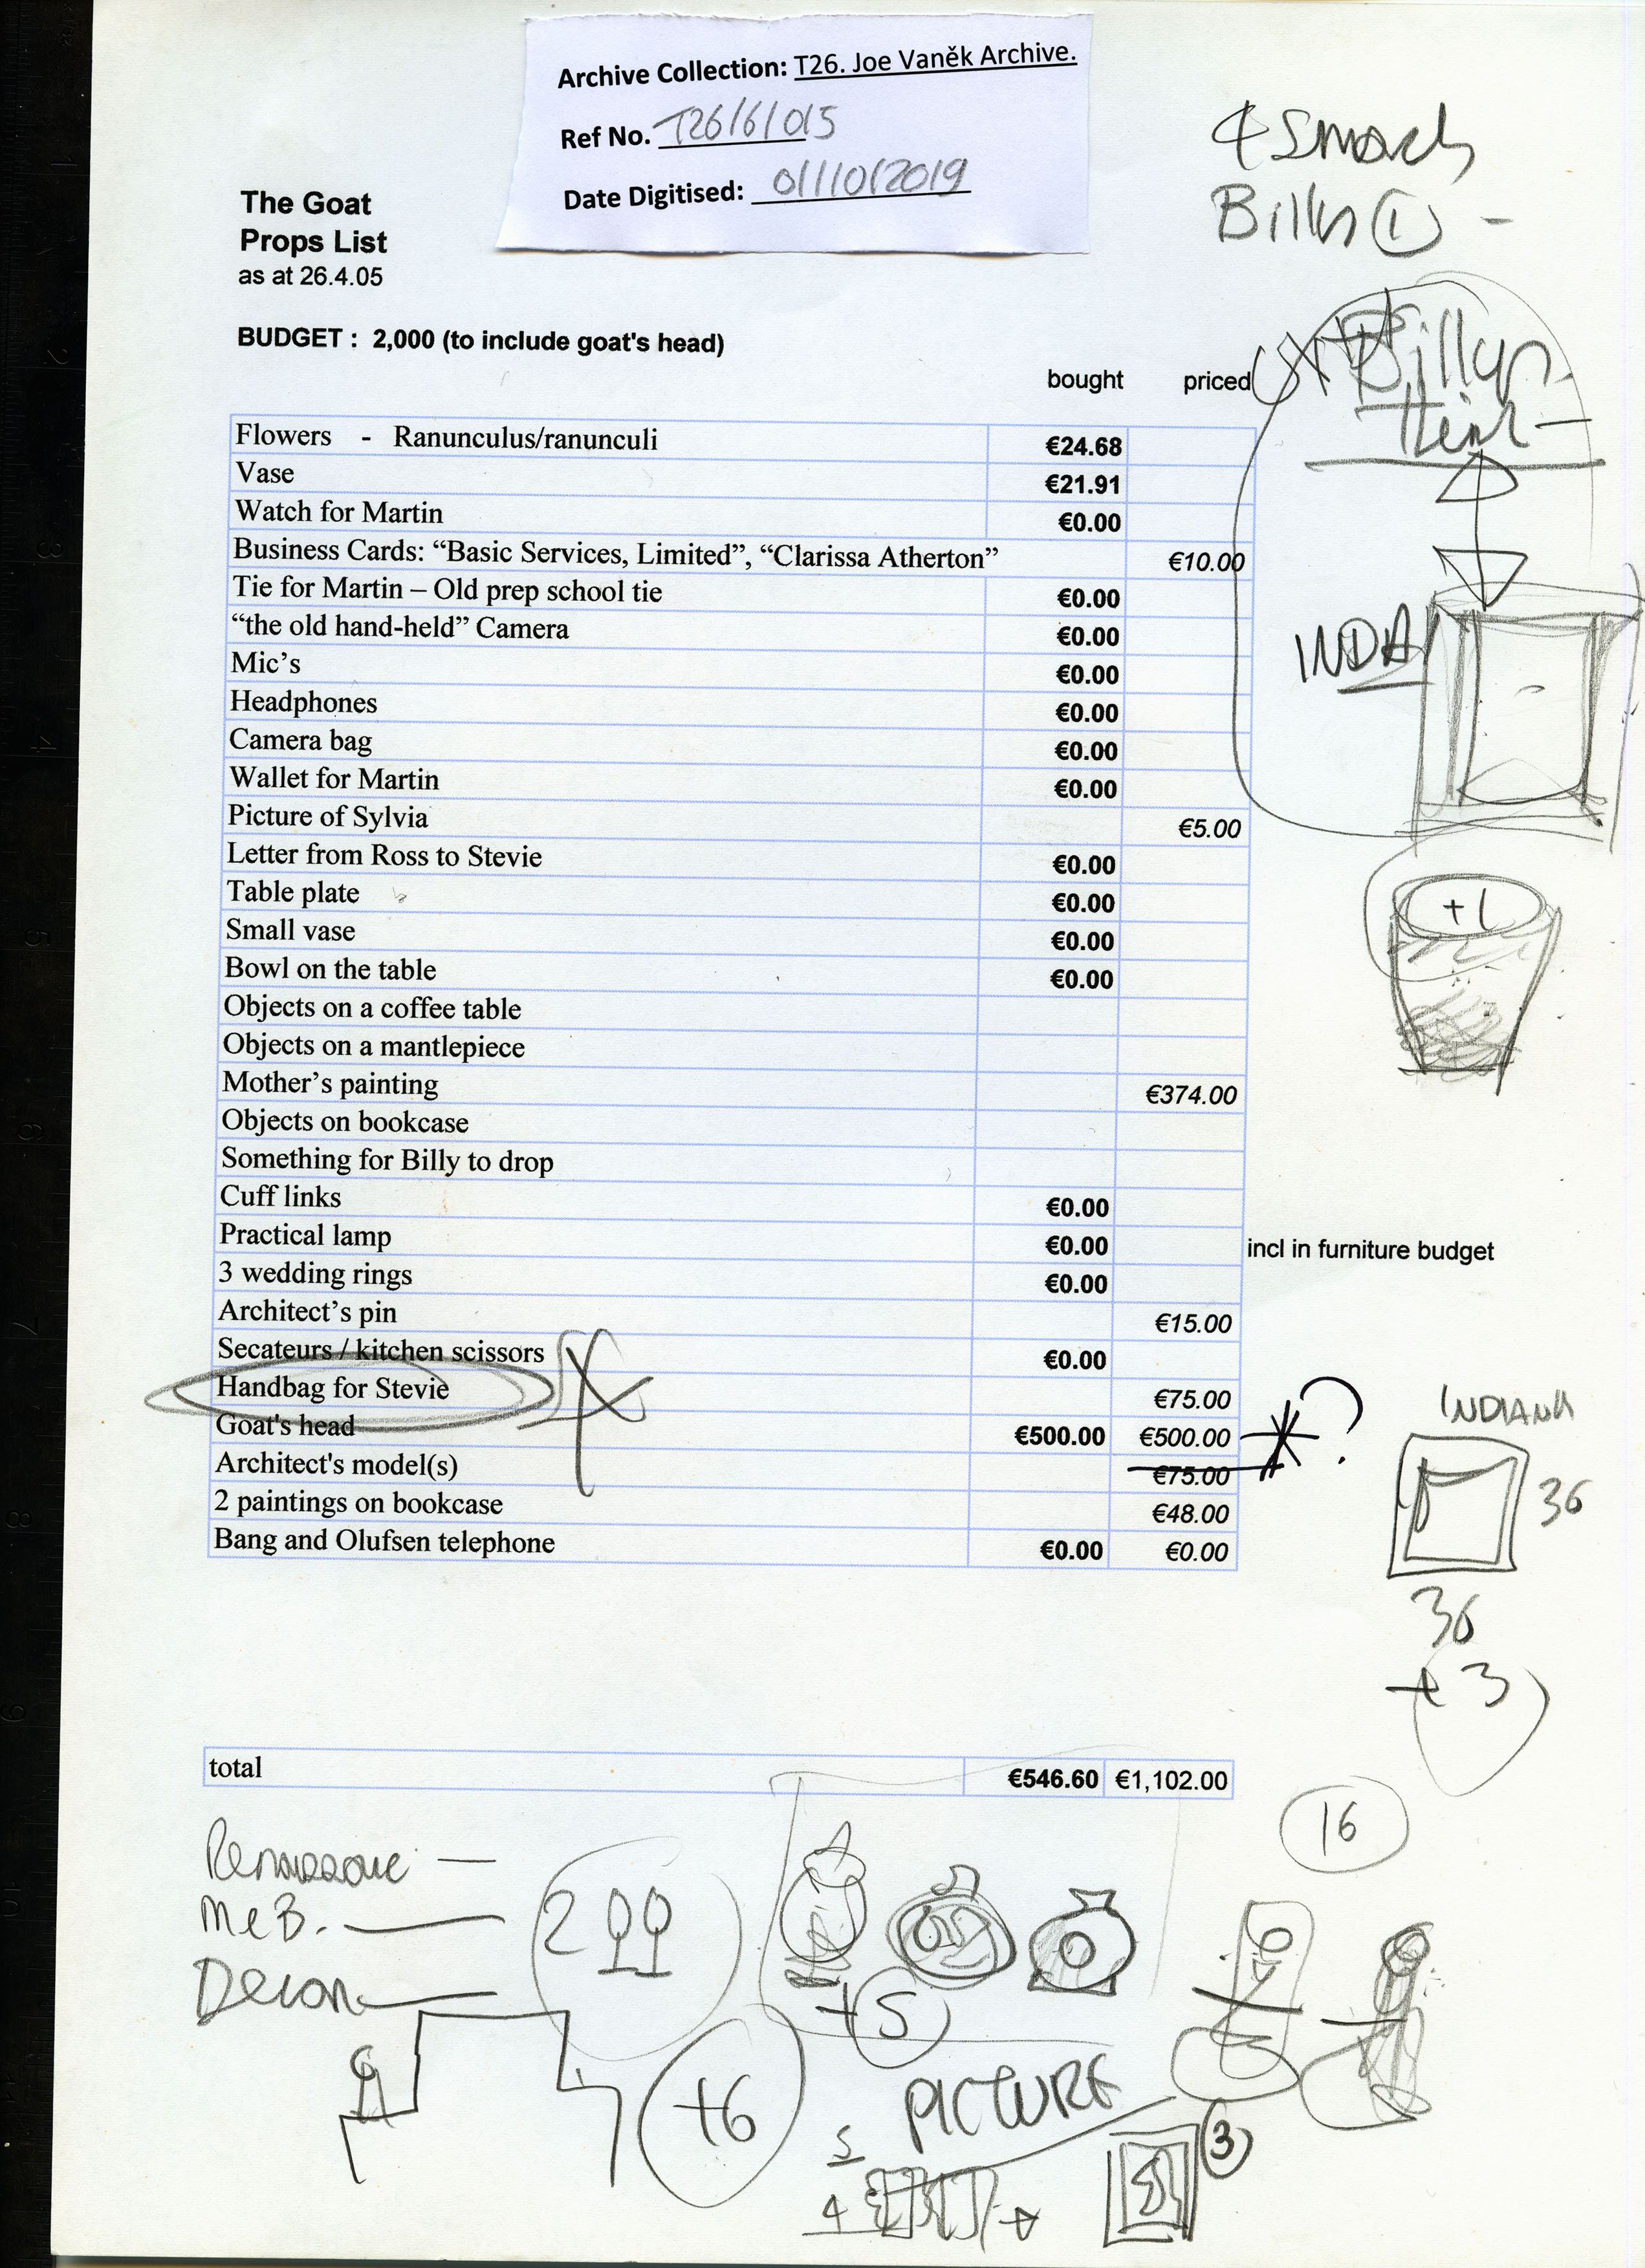 Archive Collection: T26. Joe Vaněk Archive.
Ref No. T26/6/015
Date Digitised: 01/10/2019
4 Smash
Bills ① -
The Goat
Props List
as at 26.4.05
BUDGET : 2,000 (to include goat's head)
bought priced
Billys
Item -
Flowers - Ranunculus/ranunculi €24.68
Vase €21.91
Watch for Martin €0.00
Business Cards: “Basic Services, Limited”, “Clarissa Atherton” €10.00
Tie for Martin – Old prep school tie €0.00
“the old hand-held” Camera €0.00
INDIA
Mic’s €0.00
Headphones €0.00
Camera bag €0.00
Wallet for Martin €0.00
Picture of Sylvia €5.00
Letter from Ross to Stevie €0.00
Table plate €0.00
+1
Small vase €0.00
Bowl on the table €0.00
Objects on a coffee table
Objects on a mantlepiece
Mother’s painting €374.00
Objects on bookcase
Something for Billy to drop
Cuff links €0.00
Practical lamp €0.00 incl in furniture budget
3 wedding rings €0.00
Architect’s pin €15.00
Secateurs / kitchen scissors €0.00
Handbag for Stevie €75.00
Goat's head €500.00 €500.00 ?
INDIANA
Architect's model(s) €75.00
2 paintings on bookcase €48.00
36
Bang and Olufsen telephone €0.00 €0.00
36
+ 3
total €546.60 €1,102.00
16
Renaissance —
McB. —
2
+5
+6
PICTURE
3
5
4